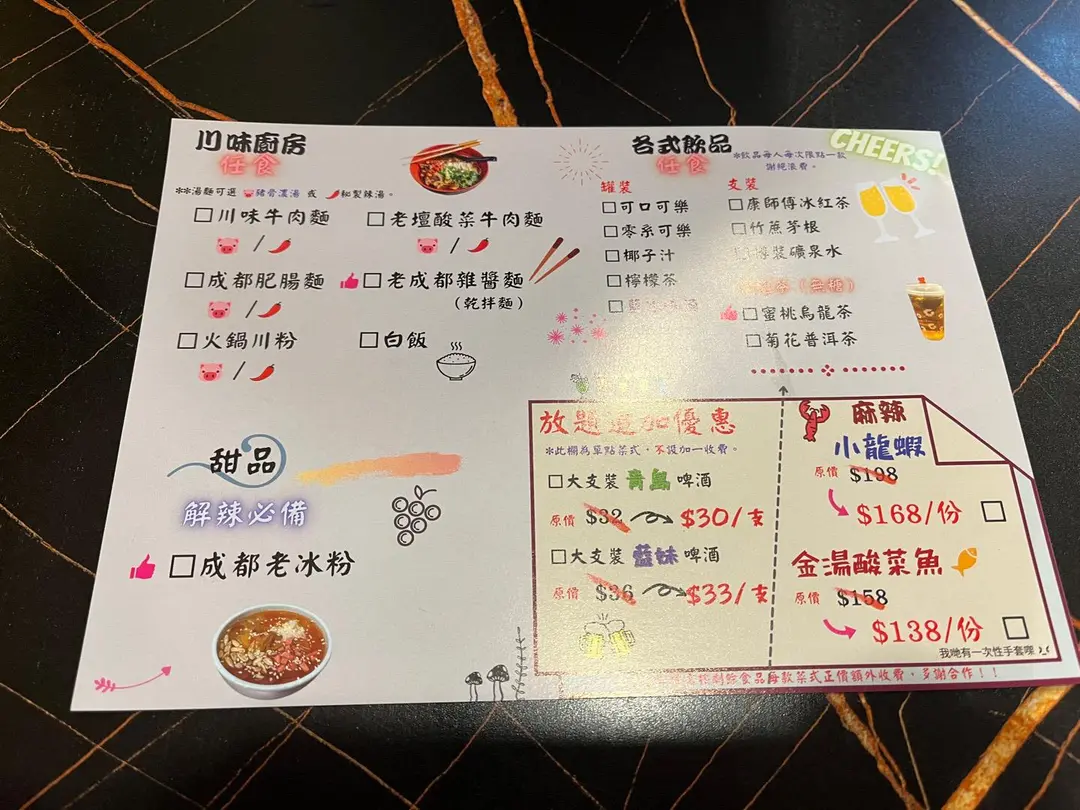 川味廚房
任食
**湯麵可選 豬骨濃湯 或 秘製辣湯。
□川味牛肉麵
□老壇酸菜牛肉麵
/
/
□成都肥腸麵
□老成都雜醬麵
(乾拌麵)
/
□火鍋川粉
□白飯
/
甜品
解辣必備
□成都老冰粉
各式飲品
任食
*飲品每人每次限點一款
謝絕浪費。
CHEERS!
罐裝
□可口可樂
□零系可樂
□椰子汁
□檸檬茶
支裝
□康師傅冰紅茶
□竹蔗茅根
裝礦泉水
(無糖)
□蜜桃烏龍茶
□菊花普洱茶
放題追加優惠
*此欄為單點菜式,不設加一收費。
□大支裝 青島 啤酒
原價 $32 $30/支
□大支裝 藍妹 啤酒
原價 $36 $33/支
麻辣
小龍蝦
原價 $198
$168/份 □
金湯酸菜魚
原價 $158
$138/份 □
我哋有一次性手套㗎
食品每款菜式正價額外收費,多謝合作!!